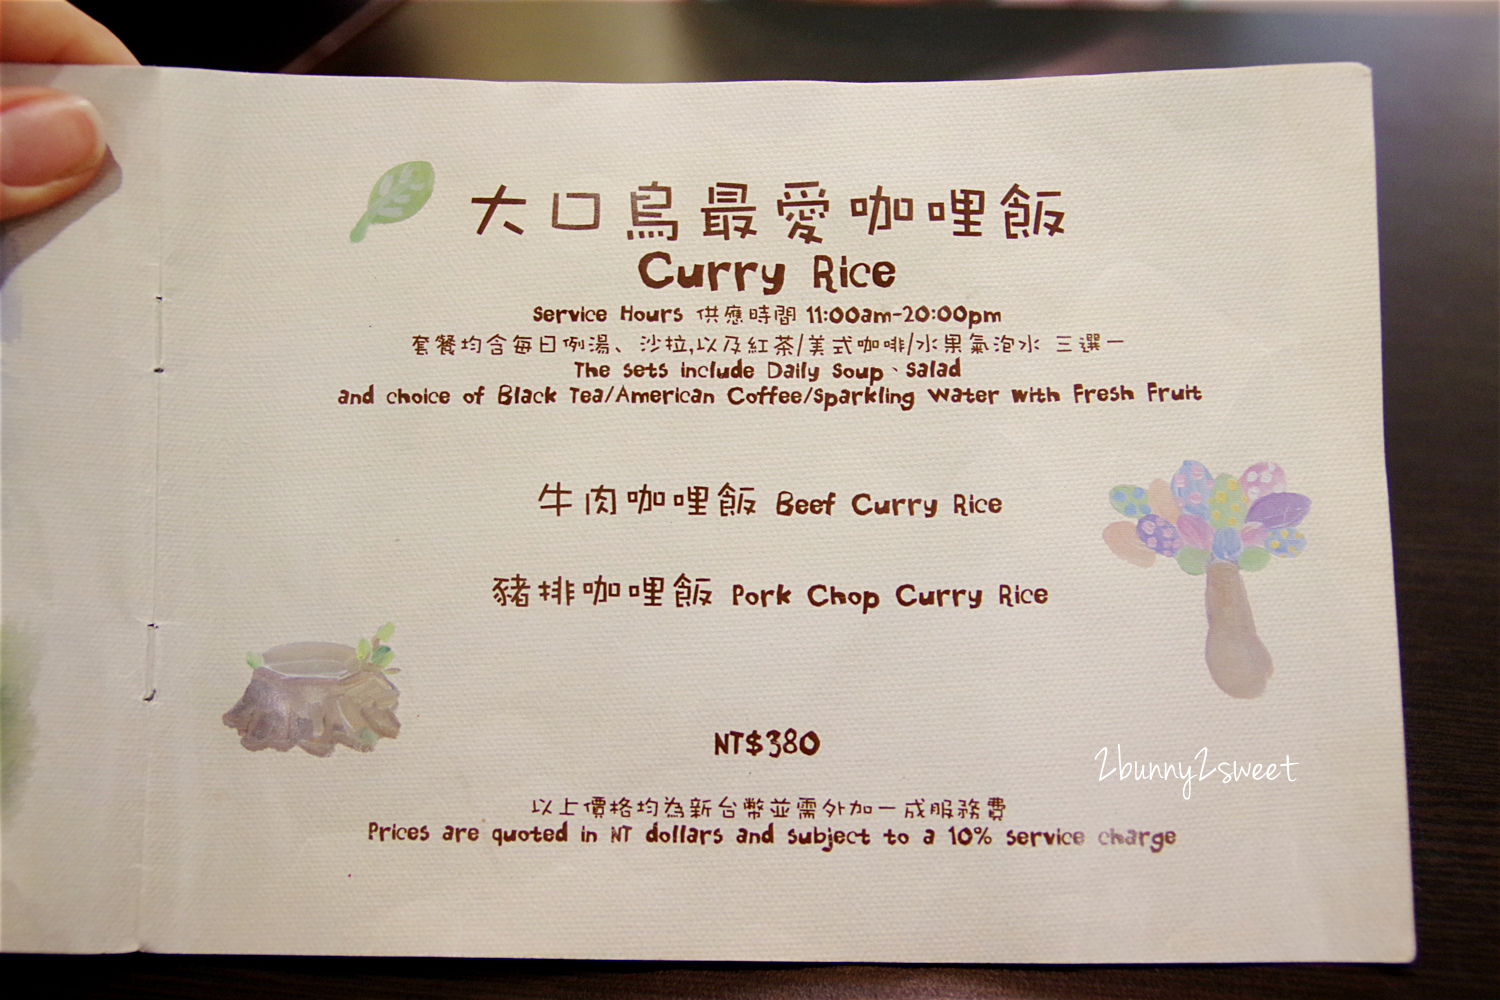 大口鳥最愛咖哩飯
Curry Rice
Service Hours 供應時間 11:00am-20:00pm
套餐均含每日例湯、沙拉,以及紅茶/美式咖啡/水果氣泡水 三選一
The sets include Daily Soup、Salad
and choice of Black Tea/American Coffee/Sparkling Water with Fresh Fruit
牛肉咖哩飯 Beef Curry Rice
豬排咖哩飯 Pork Chop Curry Rice
NT$380
2bunny2sweet
以上價格均為新台幣並需外加一成服務費
Prices are quoted in NT dollars and subject to a 10% service charge